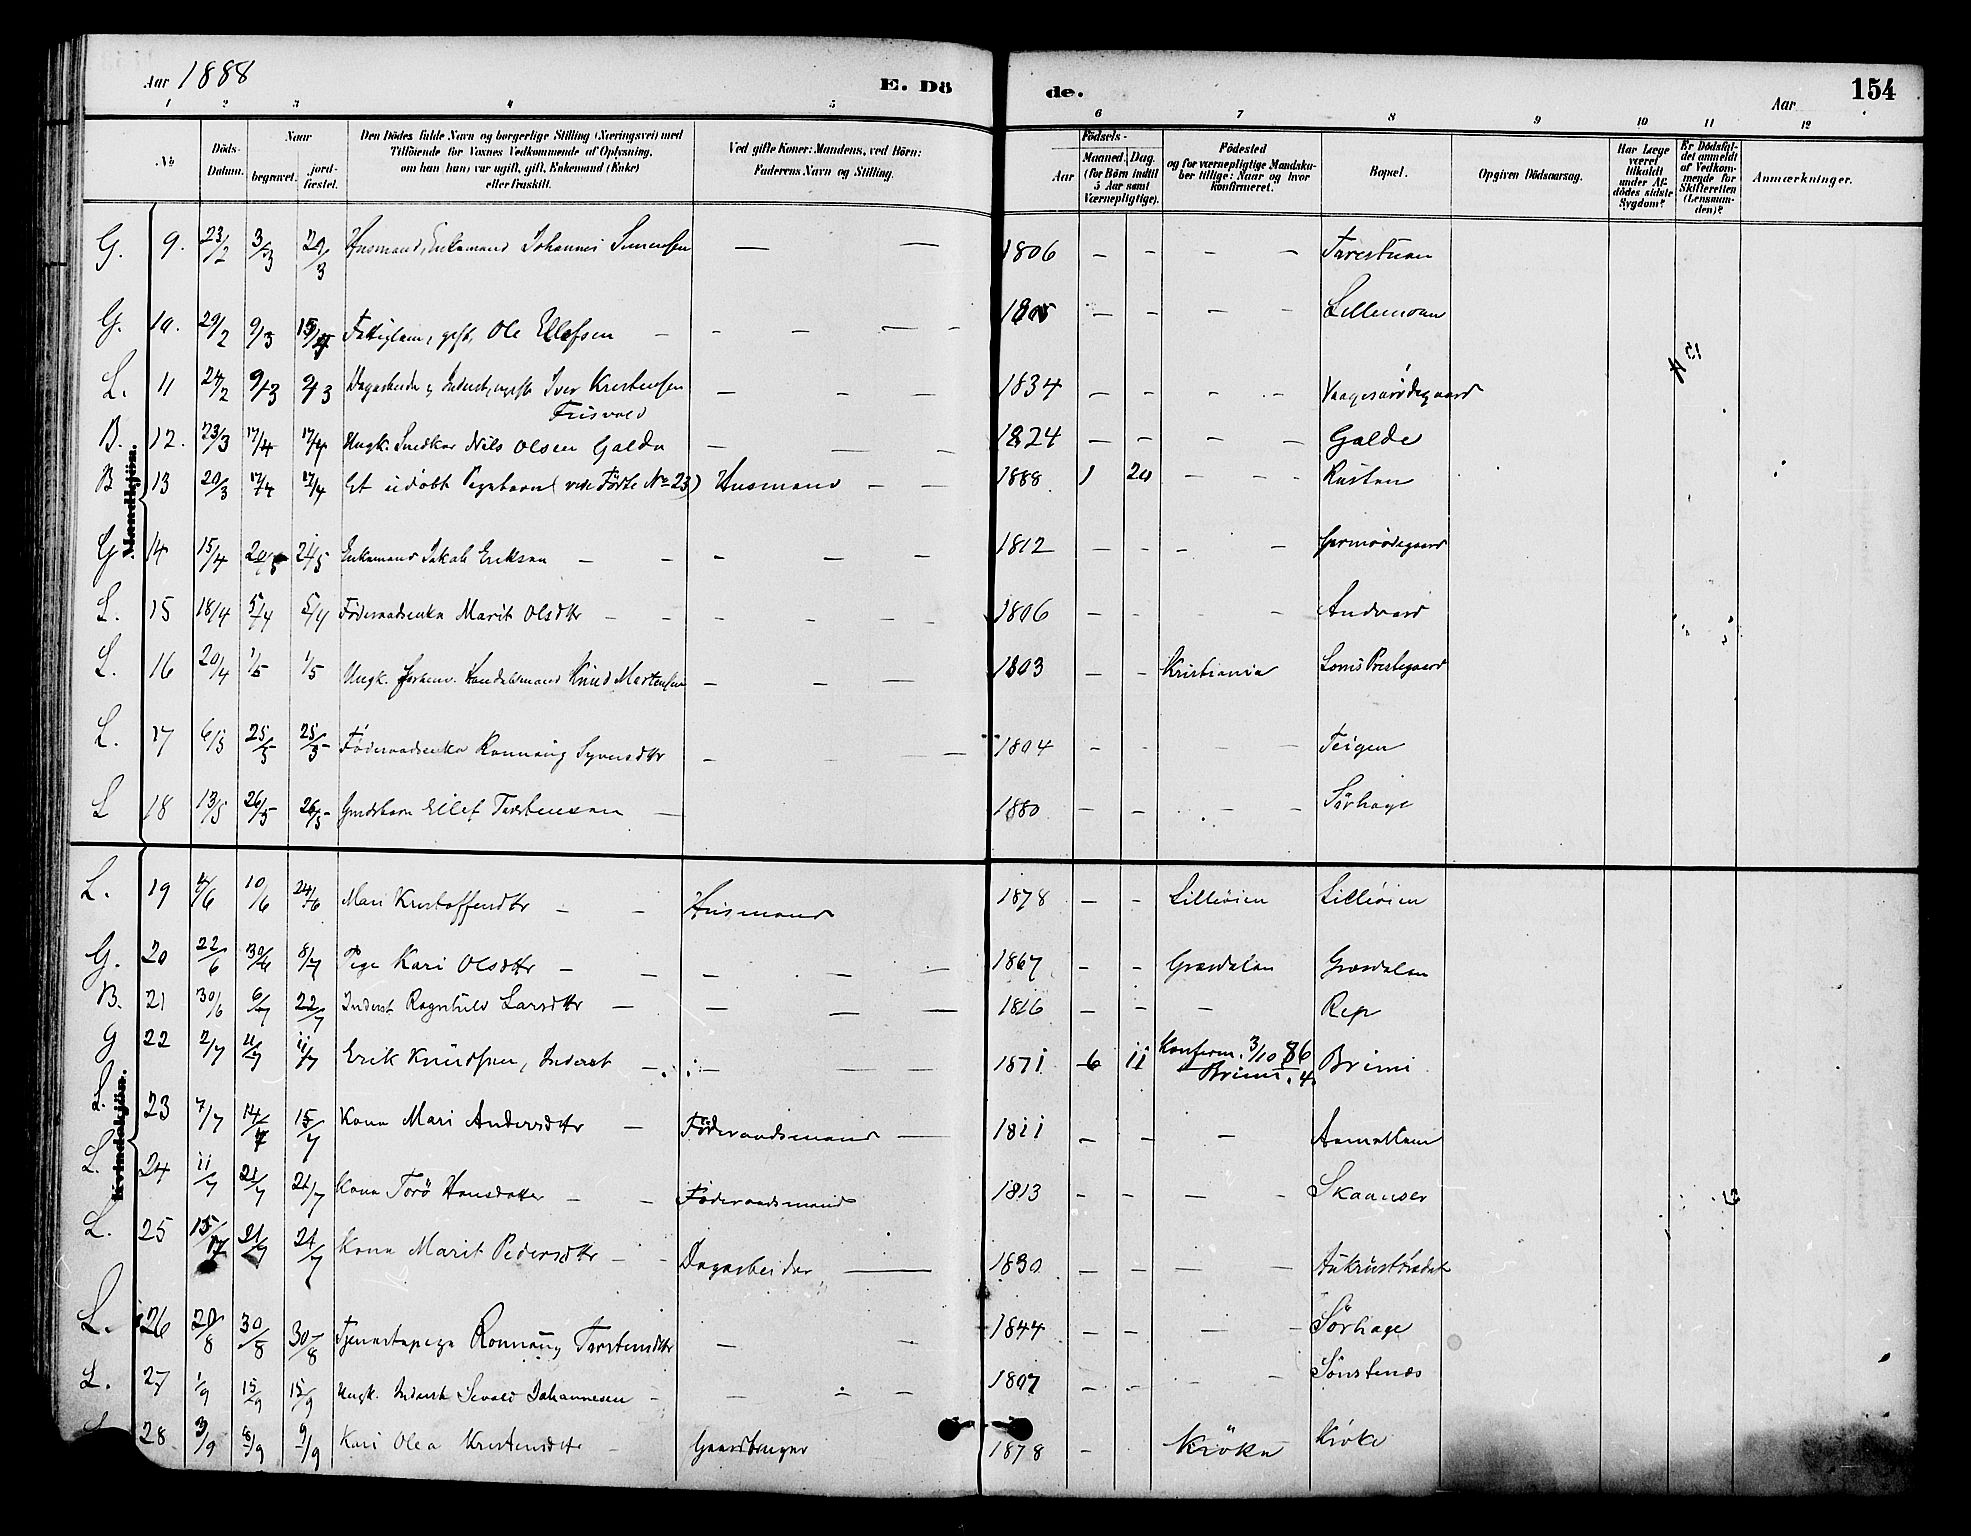 Aar 1888
E. Dö
de.
Aar
154
1 2 3 4 5 6 7 8 9 10 11 12
No
Döds-Datum.
Naar
begravet.
jord-fæstet.
Den Dödes fulde Navn og borgerlige Stilling (Næringsvei) med
Tilföiende for Voxnes Vedkommende af Oplysning,
om han (hun) var ugift, gift, Enkemand (Enke)
eller fraskilt.
Ved gifte Koner: Mandens, ved Börn:
Faderens Navn og Stilling.
Födsels-
Aar
Maaned. Dag.
(for Börn indtil
5 Aar samt
Værnepligtige).
Födested
og for værnepligtige Mandska-
ber tillige: Naar og hvor
konfirmeret.
Bopæl.
Opgiven Dödsaarsag.
Har Læge
været
tilkaldt
under Af-
dödes sidste
Sygdom?
Er Dödsfal-
det anmeldt
af Vedkom-
mende for
Skifteretten
(Lensman-
den)?
Anmærkninger.
Mandkjön.
G. 9. 23/2 3/3 Husmand, Enkemand Johannes Simensen — — 1806 — — — — Tarestuen
G. 10. 29/2 9/3 gift, Ole Ellefsen — — — — — — — — — Lillemoen
L. 11 24/2 9/3 9/3 Iver Kristensen — — — 1834 — — — —
12. 23/3 17/4 17/4 Ungk. Snedker Nils Olsen Galde — — — 1824 — — — — Galde
B 13 20/3 17/4 17/4 Et udöbt Pigebarn (vide Födte No 23) Husmand — — 1888 1 20 — — Rusten
G 14 15/4 Enkemand Jakob Eriksen — — — — — 1812 — — — —
L. 15 18/4 5/4 5/4 Föderaadsenke Marit Olsdtr — — — — — 1806 — — — — Andvord
L. 16 20/4 1/5 1/5 Ungk. forhenv. Handelsmand Knud Mortensen — — — 1803 — — Kristiania Loms Prestegaard
L. 17 6/5 25/5 25/5 Föderaadsenke Ronnaug Syversdtr — — — 1804 — — — — Teigen
L 18 13/5 26/5 26/5 Gaardbarn Ellef Torstensen — 1880 — — — — Sörhage
Kvindekjön.
L. 19 4/6 10/6 24/6 Mari Kristoffersdtr — — Husmand 1878 — — Lilleöien Lilleöien
G. 20 22/6 30/6 8/7 Pige Kari Olsdtr — — — — — 1867 — — Grøsdalen Grøsdalen
B. 21 30/6 6/7 22/7 Inderst Ragnhild Larsdtr — — — — 1816 — — — Rep
G 22 2/7 11/7 11/7 Erik Knudsen, Inderst — — — — 1871 6 11 Konfirm. 3/10 86
Brimi. Brimi
L. 23 7/7 14/7 15/7 Kone Mari Andersdtr — Föderaadsmand — 1811 — — —
L. 24 11/7 21/7 21/7 Kone Torö Hansdatter — — Föderaadsmand 1813 — — — — Skaanser
L. 25 15/7 21/7 21/7 Kone Marit Pedersdtr — — Dagarbeider — 1830 — — — —
L. 26 20/8 30/8 30/8 Tjenestepige Ronnaug Torstensdtr — — 1844 — — — — Sörhage
L. 27 1/9 15/9 15/9 Ungk. Inderst Sevald Johannesen — — — — 1807 — — — — Sönstenæs
28 3/9 9/9 Kari Olea Kristensdtr — Gaardbruger 1878 — Kröke Kröke